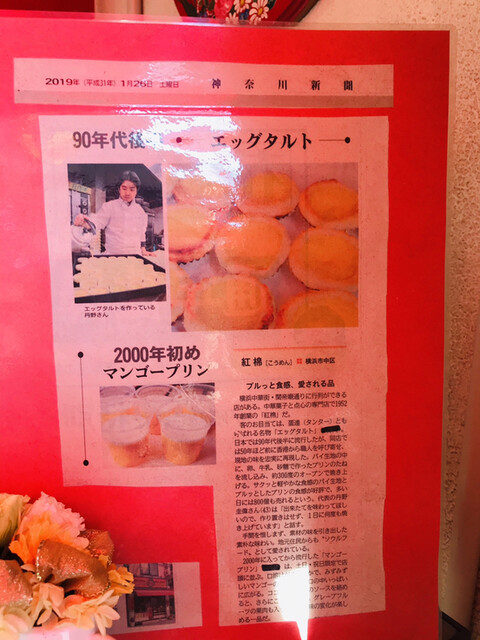 2019年（平成31年）1月26日 土曜日 神奈川新聞
90年代後
エッグタルト
エッグタルトを作っている
2000年初め
マンゴープリン
紅棉［こうめん］ 横浜市中区
プルっと食感、愛される品
横浜中華街・関帝廟通りに行列ができる
店がある。中華菓子と点心の専門店で1952
年創業の「紅棉」だ。
客のお目当ては、蛋達（タンター）とも
ばれる名物「エッグタルト」
日本では90年代後半に流行したが、同店で
は50年ほど前に香港から職人を呼び寄せ、
現地の味を忠実に再現した。パイ生地の中
に、卵、牛乳、砂糖で作ったプリンのたね
を流し込み、約300度のオーブンで焼き上
げる。サクッと軽やかな食感のパイ生地と
プルッとしたプリンの食感が好評で、多い
日には800個も売れるという。代表の丹野
さん は「出来たてを味わってほ
しいので、作り置きはせず、1日に何度も焼
き上げています」と話す。
手間を惜しまず、素材の味を引き出した
素朴な味わい。地元住民からも“ソウルフ
ード”として愛されている。
2000年に入ってから流行した「マンゴー
プリン」 は、土日・祝日限定で店